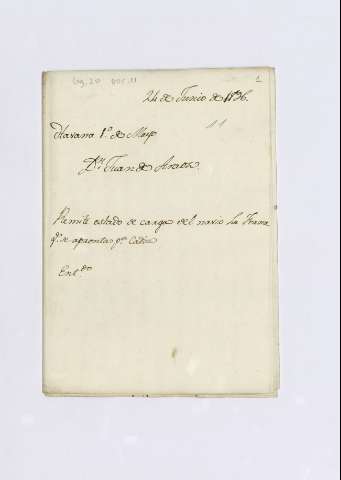 Leg. 20 DOC. 11
1
24 de Junio de 1796.
11
Havana 1.º de Mayo
D.n Juan de Araoz.
Remite estado de carga del navio la
q.e se apronta p.a Cadiz
Ent.do